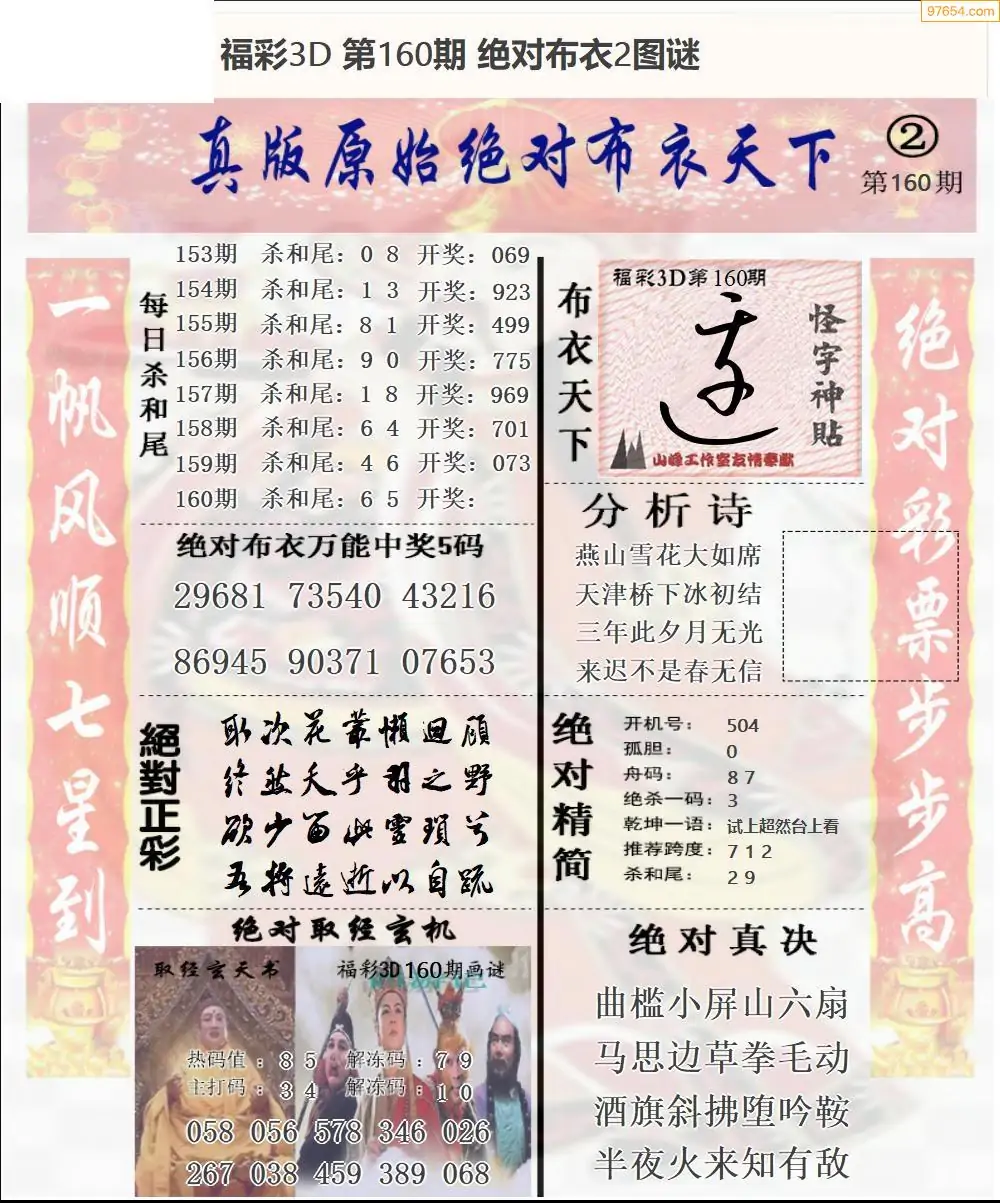 97654.com
福彩3D 第160期 绝对布衣2图谜
真版原始绝对布衣天下
②
第160期
一帆风顺七星到
每日杀和尾
153期 杀和尾：0 8 开奖：069
154期 杀和尾：1 3 开奖：923
155期 杀和尾：8 1 开奖：499
156期 杀和尾：9 0 开奖：775
157期 杀和尾：1 8 开奖：969
158期 杀和尾：6 4 开奖：701
159期 杀和尾：4 6 开奖：073
160期 杀和尾：6 5 开奖：
绝对布衣万能中奖5码
29681 73540 43216
86945 90371 07653
絕對正彩
取次花叢懶迴顧
终然夭乎羽之野
欲少留此靈瑣兮
吾将遠逝以自疏
绝对取经玄机
取经玄天书
福彩3D160期画谜
热码值：8 5 解冻码：7 9
主打码：3 4 解冻码：1 0
058 056 578 346 026
267 038 459 389 068
布衣天下
福彩3D第160期
怪字神贴
山峰工作室友情奉献
分析诗
燕山雪花大如席
天津桥下冰初结
三年此夕月无光
来迟不是春无信
绝对精简
开机号：504
孤胆：0
舟码：8 7
绝杀一码：3
乾坤一语：试上超然台上看
推荐跨度：7 1 2
杀和尾：2 9
绝对真决
曲槛小屏山六扇
马思边草拳毛动
酒旗斜拂堕吟鞍
半夜火来知有敌
绝对彩票步步高